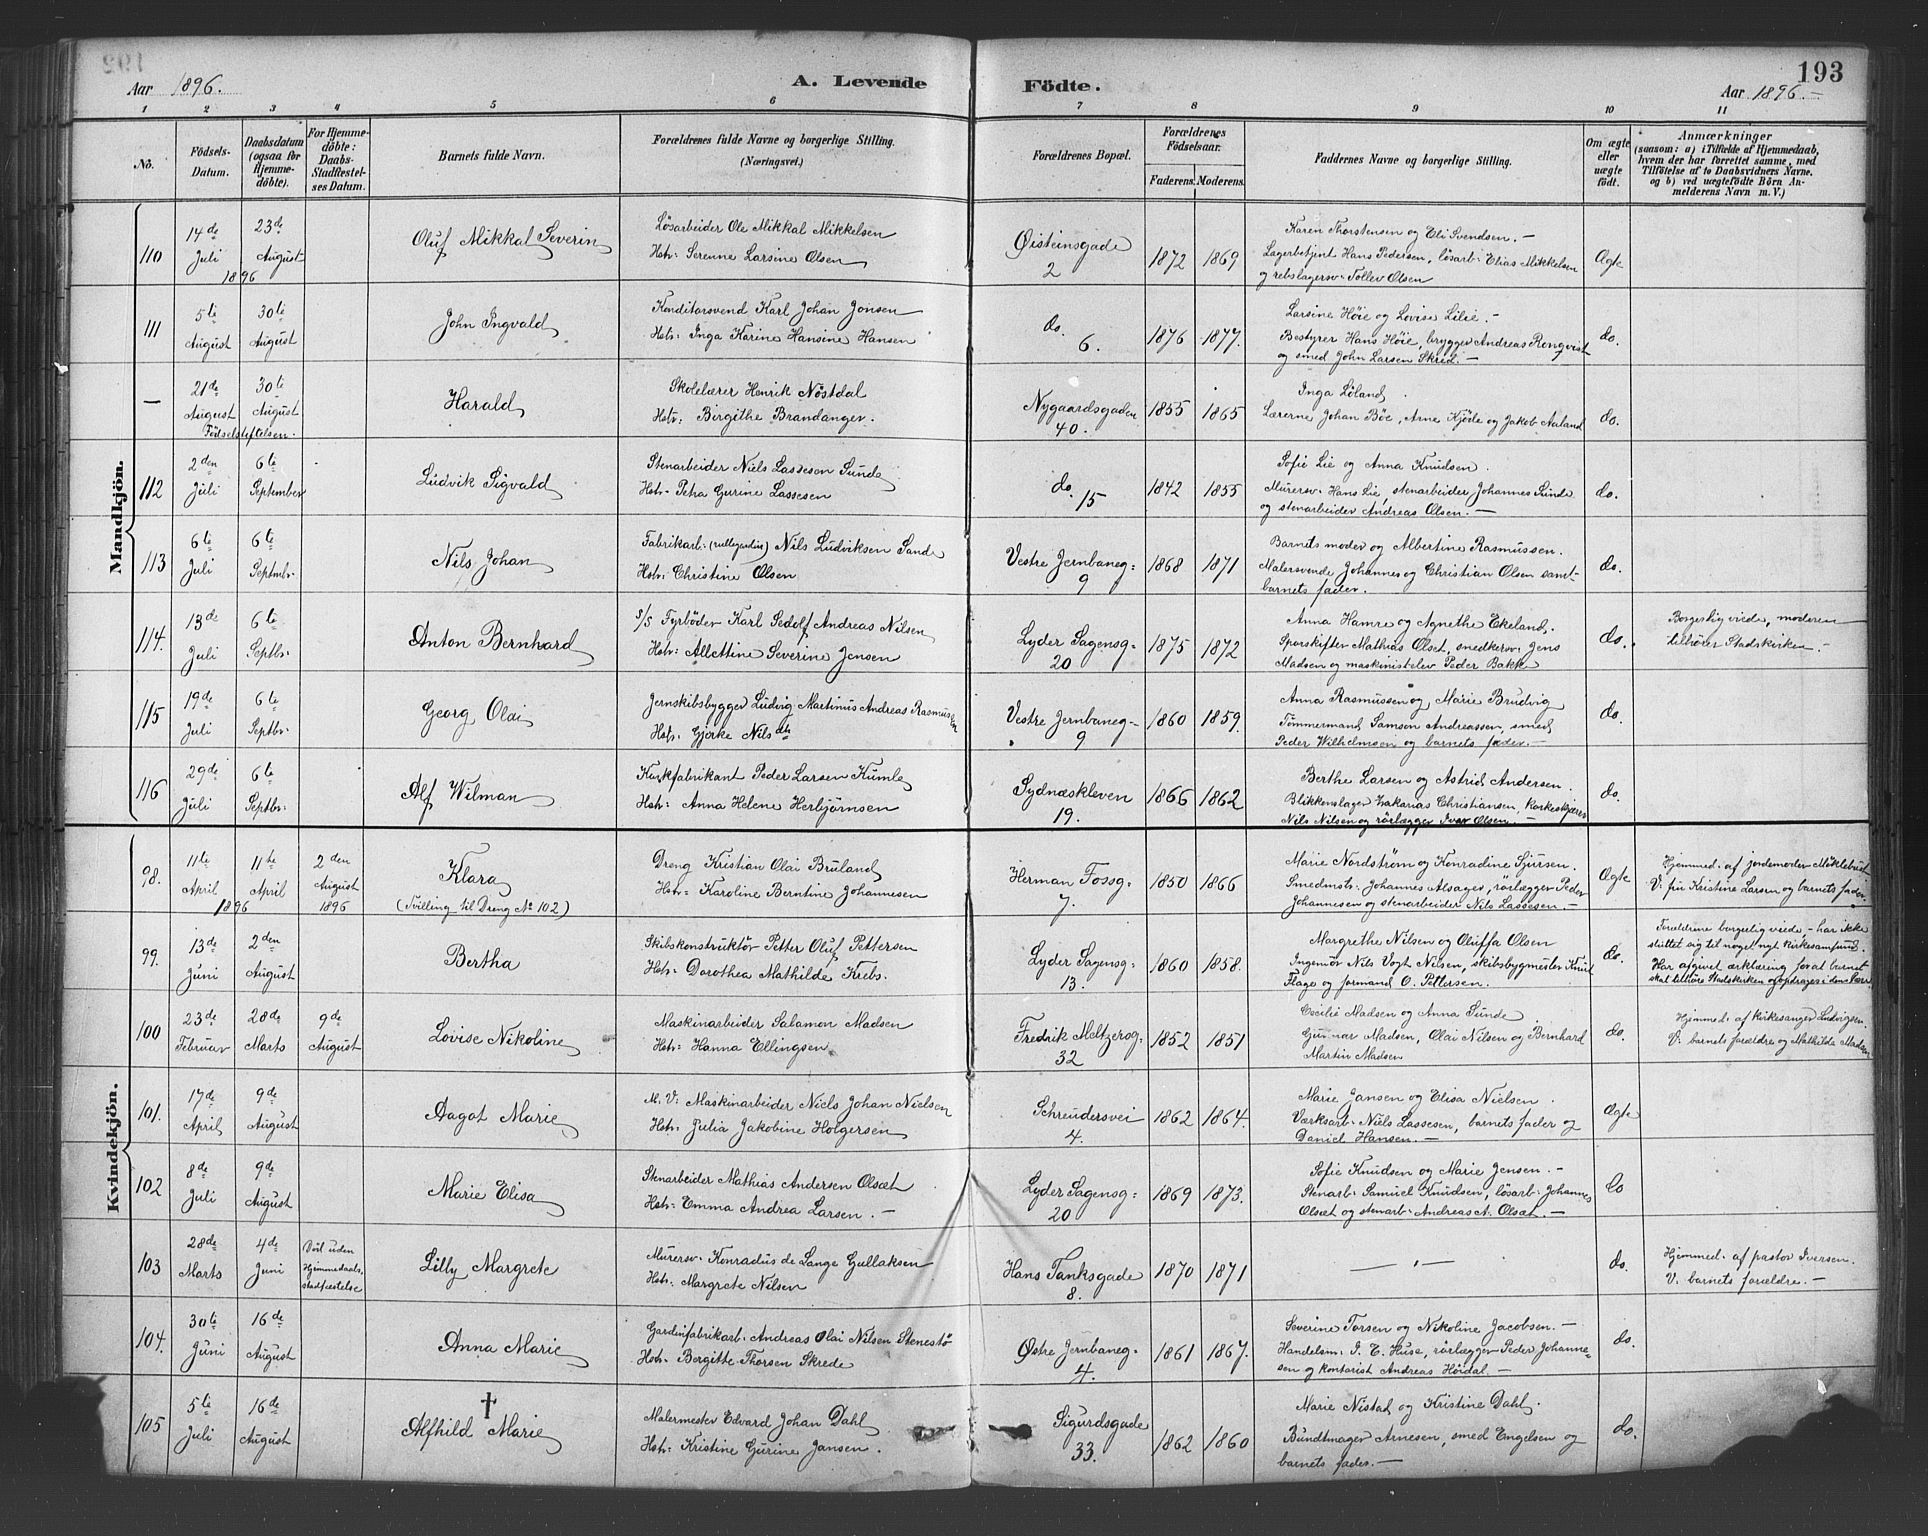 Aar 1896.
A. Levende Födte.
193
Aar 1896.—
1 2 3 4 5 6 7 8 9 10 11
No.
Födsels-Datum.
Daabsdatum (ogsaa for Hjemmedöbte).
For Hjemmedöbte: Daabs-Stadfæstelses Datum.
Barnets fulde Navn.
Forældrenes fulde Navne og borgerlige Stilling.
(Næringsvei.)
Forældrenes Bopæl.
Forældrenes Födselsaar.
Faderens. Moderens.
Faddernes Navne og borgerlige Stilling.
Om ægte eller uægte födt.
Anmærkninger
(saasom: a) i Tilfælde af Hjemmedaab, hvem der har forrettet samme, med Tilföielse af to Daabsvidners Navne. og b) ved uægtefödte Börn Anmelderens Navn m. V.)
Mandkjön.
110
14de Juli 1896
23de August
Oluf Mikkal Severin
Lösarbeider Ole Mikkal Mikkelsen
Hstr: Serenne Larsine Olsen
Øisteinsgade
2
1872 1869
Karen Thorstensen og Eli Svendsen.—
Lagerbetjent Hans Pedersen, lösarb: Elias Mikkelsen
og rebslagersv: Tollev Olsen
Ægte
111
5te August
30te August
John Ingvald
Konditorsvend Karl Johan Jonsen
Hstr: Inga Karine Hansine Hansen
do.
6.
1876 1877.
Larsine Höie og Lovise Lilie.—
Bestyrer Hans Höie, brygger Andreas Ronqvist
og smed John Larsen Skred.—
do.
—
21de August
Födselstiftelsen.
30te August
Harald
Skolelærer Henrik Nöstdal
Hstr: Birgithe Brandanger.
Nygaardsgaden
40.
1855 1865
Inga Löland
Lærerne Johan Böe, Arne Kjöde og Jakob Aaland
do.
112
2den Juli
6te September
Ludvik Sigvald
Stenarbeider Niels Lassesen Sunde
Hstr: Petra Gurine Lassesen
do.
15
1842 1855
Sofie Lie og Anna Knudsen.
Murersv: Hans Lie, stenarbeider Johannes Sunde
og stenarbeider Andreas Olsen.—
do.
113
6te Juli
6te Septmbr.
Nils Johan
Fabrikarb: (rullegardin) Nils Ludviksen Sande
Hstr: Christine Olsen
Vestre Jernbaneg:
9
1868 1871
Barnets moder og Albertine Rasmussen.
Malersvende Johannes og Christian Olsen samt
barnets fader.
do.
114.
13de Juli
6te Septbr:
Anton Bernhard
S/S Fyrböder Karl Sedolf Andreas Nilsen
Hstr: Allettine Severine Jensen
Lyder Sagensg:
20
1875 1872
Anna Hamre og Agnethe Ekeland.
Sporskifter Mathias Olset, smedkersv: Jens
Madsen og maskinistelev Peder Bakke
do.
Borgerlig viede, moderen
tilhörer Stadskirken.—
115
19de Juli
6te Septbr:
Georg Olai
Jernskibsbygger Ludvig Martinus Andreas Rasmussen
Hstr: Gjorke Nilsdtr
Vestre Jernbaneg:
9
1860 1859.
Anna Rasmussen og Marie Brudvig
Tömmermand Samson Andreassen, smed
Peder Wilhelmsen og barnets fader.—
do.
116
29de Juli
6te Septbr:
Alf Wilman
Korkfabrikant Peder Larsen Kumle
Hstr: Anna Helene Herbjörnsen
Sydnæskleven
19.
1866 1862
Berthe Larsen og Astrid Andersen.
Blikkenslager Zakarias Christiansen, Korkeskjærer
Nils Nilsen og rörlægger Iver Olsen.—
do.
Kvindekjön.
98.
11te April 1896
11te April
2den August 1896
Klara
(Tvilling til Dreng No 102)
Dreng Kristian Olai Bruland
Hstr: Karoline Berntine Johannesen
Herman Fossg:
7.
1850 1866
Marie Nordström og Konradine Sjursen.
Smedmstr: Johannes Alsager, rörlægger Peder
Johannesen og stenarbeider Nils Lassesen.—
Ægte
Hjemmed: af jordemoder Möklebust
V: fru Kristine Larsen og barnets fader.
99.
13de Juni
2den August
Bertha
Skibskonstruktör Petter Oluf Pettersen
Hstr: Dorothea Mathilde Krebs.
Lyder Sagensg:
13.
1860 1858.
Margrethe Nilsen og Oluffa Olsen
Ingeniör Nils Vogt Nilsen, skibsbygmester Knut
Flage og formand O. Pettersen.
do.
Forældrene borgerlig viede – har ikke
sluttet sig til noget nyt kirkesamfund.
Har afgivet erklæring for at barnet
skal tilhöre Stadskirken og opdrages i dens Lære
100
23de Februar
28de Marts
9de August
Lovise Nikoline
Maskinarbeider Salamon Madsen
Hstr: Hanna Ellingsen
Fredrik Meltzersg:
32
1852 1851
Cecilie Madsen og Anna Sunde
Gunnar Madsen, Olai Nilsen og Bernhard
Martin Madsen
do.
Hjemmed: af kirkesanger Ludvigsen.
V: barnets forældre og Mathilde Madsen
101.
17de April
9de August
Aagot Marie
M. V: Maskinarbeider Niels Johan Nielsen
Hstr: Julia Jakobine Holgersen
Schreudersvei
4.
1862 1864.
Marie Jansen og Elisa Nielsen.
Værksarb: Niels Lassesen, barnets fader og
Daniel Hansen.—
Ægte
102
8de Juli
9de August
Marie Elisa
Stenarbeider Mathias Andersen Olsæt
Hstr: Emma Andrea Larsen.—
Lyder Sagensg:
20
1869 1873.
Sofie Knudsen og Marie Jensen.—
Stenarb: Samuel Knudsen, lösarb: Johannes
Olsæt og stenarb: Andreas A. Olsæt.—
do
103
28de Marts
4de Juni
Död uden Hjemmedaabsstadfæstelse
Lilly Margrete
Murersv: Konradus de Lange Gullaksen
Hstr: Margrete Nilsen
Hans Tanksgade
8.
1870 1871
— " —
do.
Hjemmed: af pastor Iversen.
V: barnets forældre.—
104.
30te Juni
16de August
Anna Marie
Gardinfabrikarb: Andreas Olai Nilsen Stenestö
Hstr: Bergitte Thorsen Skrede
Østre Jernbaneg:
4.
1861 1867.
Severine Torsen og Nikoline Jacobsen.—
Handelsm: I. E. Huse, rörlægger Peder Johannesen og kontorist Andreas Höidal—
do.
105
5te Juli
16de August
†
Alfhild Marie
Malermester Edvard Johan Dahl
Hstr: Kristine Gurine Jansen.
Sigurdsgade
33.
1862 1860
Marie Nistad og Kristine Dahl.
Bundtmager Arnesen, smed Engelsen og
barnets fader.—
do.